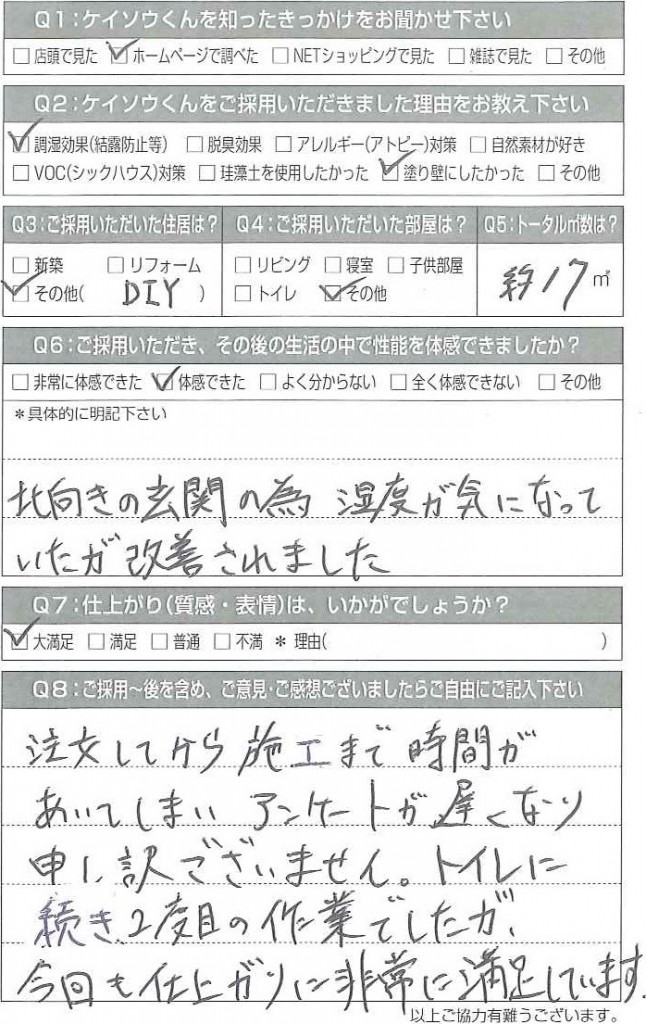 Q1:ケイソウくんを知ったきっかけをお聞かせ下さい
□店頭で見た ☑ホームページで調べた □NETショッピングで見た □雑誌で見た □その他
Q2:ケイソウくんをご採用いただきました理由をお教え下さい
☑調湿効果(結露防止等) □脱臭効果 □アレルギー(アトピー)対策 □自然素材が好き
□VOC(シックハウス)対策 □珪藻土を使用したかった ☑塗り壁にしたかった □その他
Q3:ご採用いただいた住居は? Q4:ご採用いただいた部屋は? Q5:トータル㎡数は?
□新築 □リフォーム □リビング □寝室 □子供部屋
☑その他( DIY ) □トイレ ☑その他 約17㎡
Q6:ご採用いただき、その後の生活の中で性能を体感できましたか?
□非常に体感できた ☑体感できた □よく分からない □全く体感できない □その他
*具体的に明記下さい
北向きの玄関の為 湿度が気になって
いたが改善されました
Q7:仕上がり(質感・表情)は、いかがでしょうか?
☑大満足 □満足 □普通 □不満 *理由( )
Q8:ご採用~後を含め、ご意見・ご感想ございましたらご自由にご記入下さい
注文してから施工まで時間が
あいてしまい アンケートが遅くなり
申し訳ございません。トイレに
続き、2度目の作業でしたが、
今回も仕上がりに非常に満足しています.
以上ご協力有難うございます。